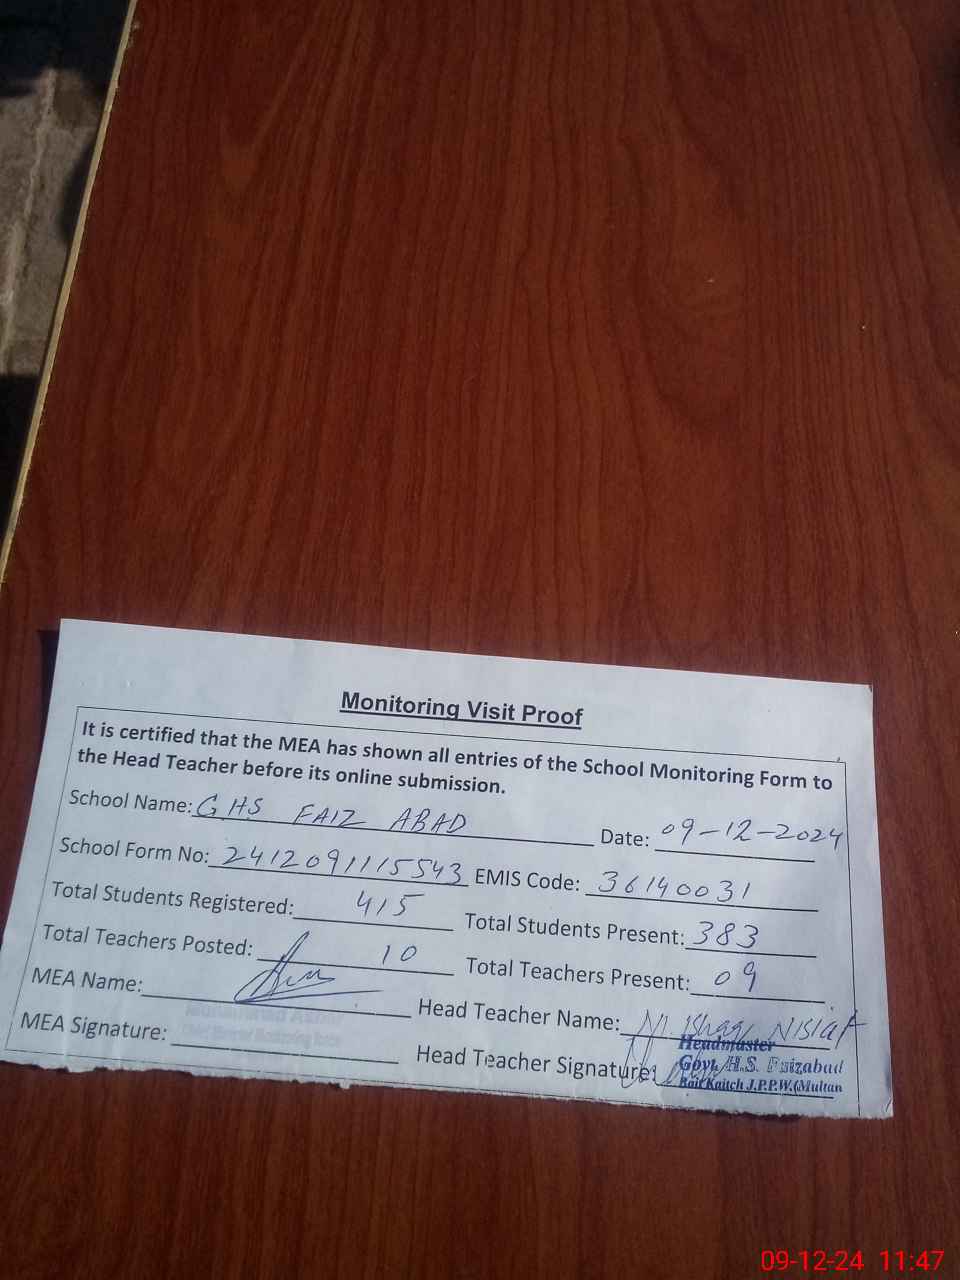 Monitoring Visit Proof
It is certified that the MEA has shown all entries of the School Monitoring Form to
the Head Teacher before its online submission.
School Name: GHS FAIZ ABAD Date: 09-12-2024
School Form No: 2412091115543 EMIS Code: 36140031
Total Students Registered: 415 Total Students Present: 383
Total Teachers Posted: 10 Total Teachers Present: 09
MEA Name: Head Teacher Name: M. Ishaq
MEA Signature: Head Teacher Signature:
Headmaster
Govt. H.S. Faizabad
J.P.P.W.(Multan
09-12-24 11:47